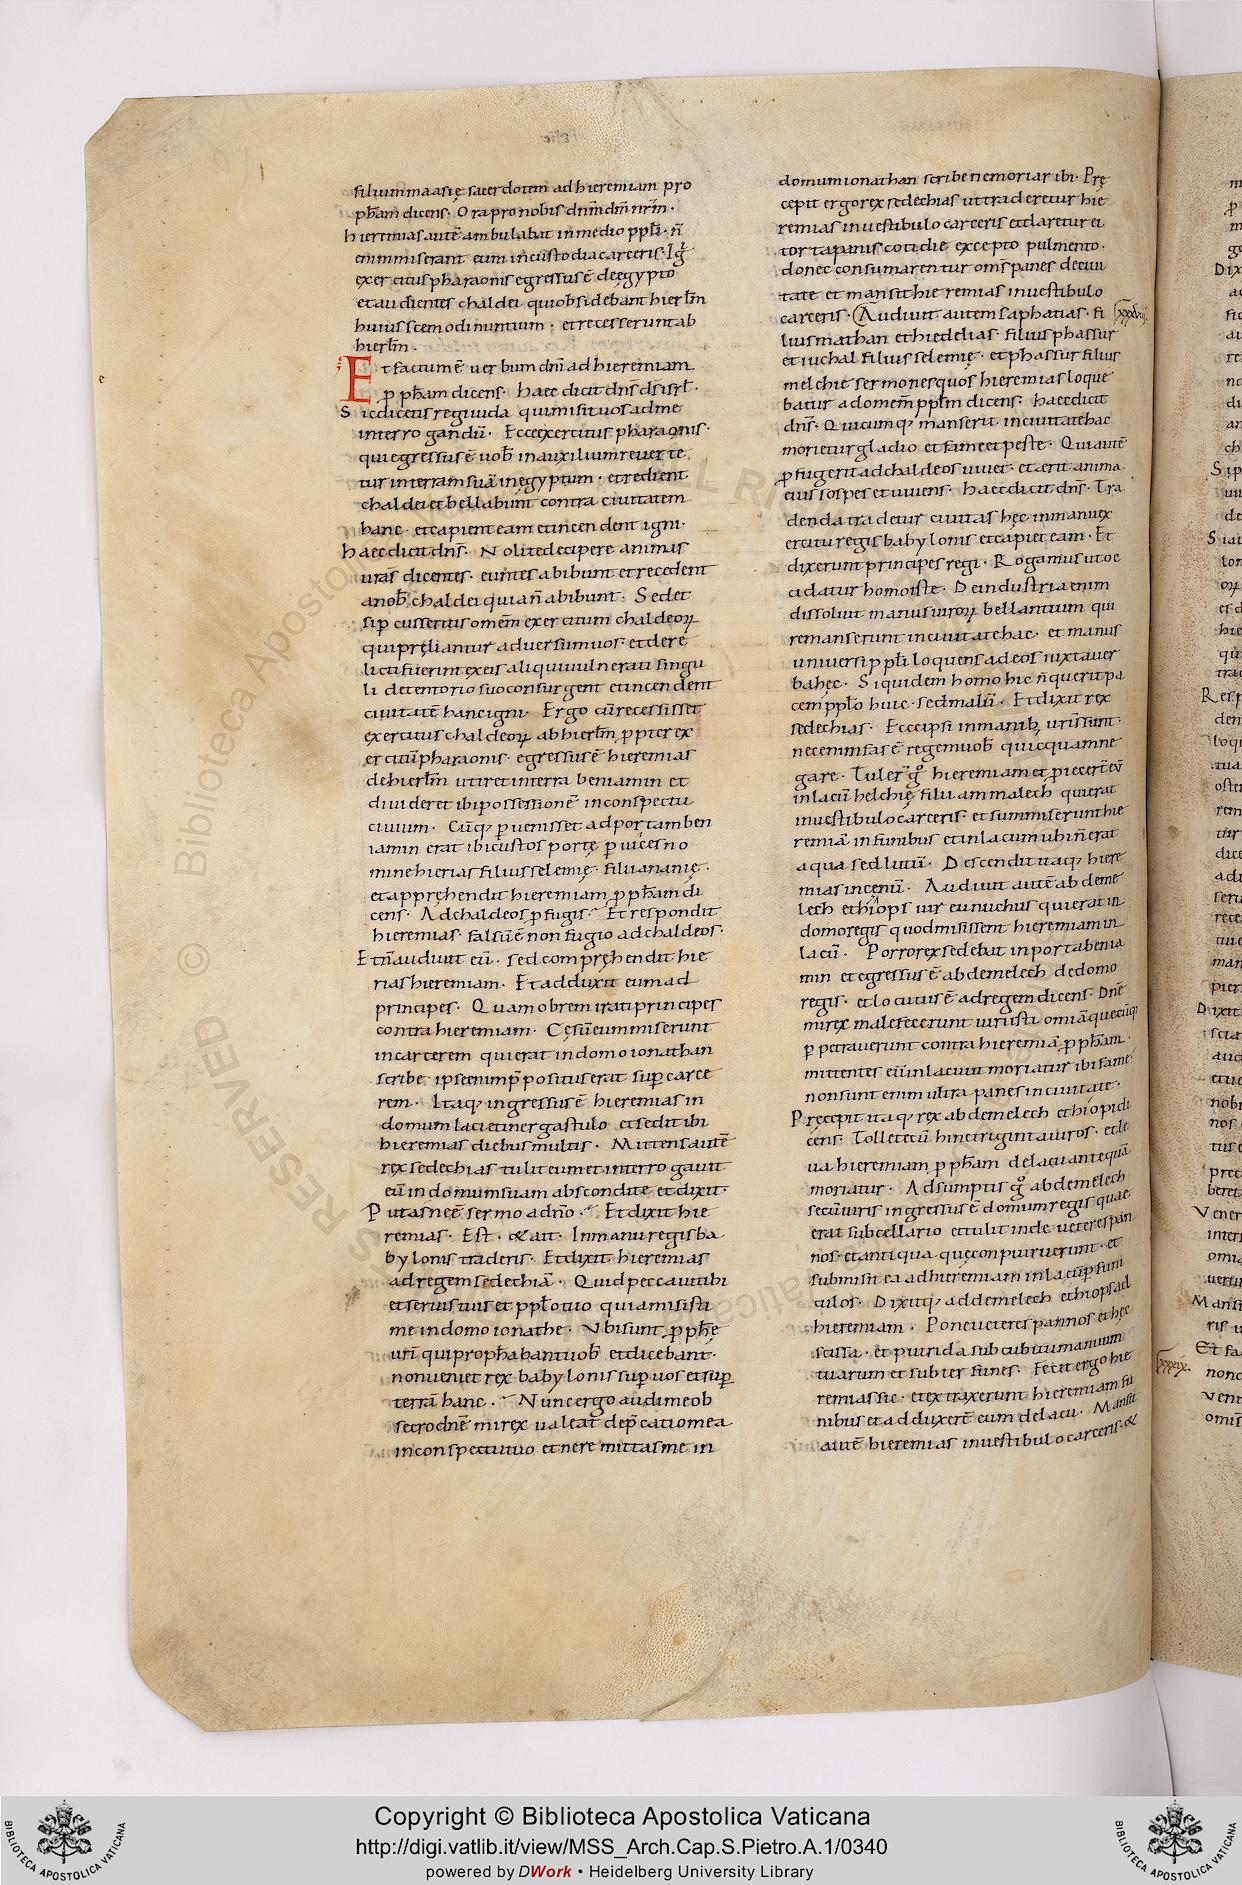 filium maasię sacerdotem ad hieremiam pro
ph̄am dicens · Ora pro nobis dn̄m dm̄ nr̄m ·
hieremias autē ambulabat in medio ppl̄i · n̄
enim miserant eum in custodia carceris · Igr̄
exercitus pharaonis egressus ē de ęgypto
et audientes chaldei qui obsidebant hierl̄m
huiuscemodi nuntium · et recesserunt ab
hierl̄m ·
Et factum ē verbum dn̄i ad hieremiam
pph̄am dicens · haec dicit dn̄s ds̄ isrl̄ ·
Sic dicetis regi iuda qui misit uos ad me
interrogandū · Ecce exercitus pharaonis ·
qui egressus ē uob̄ in auxilium reuerte
tur in terram suā in ęgyptum · et redient
chaldei et bellabunt contra ciuitatem
hanc · et capient eam et incendent igni ·
haec dicit dn̄s · Nolite decipere animas
uras̄ dicentes · euntes abibunt et recedent
a nob̄ chaldei quia n̄ abibunt · Sed et
si pcusseritis omēm exercitum chaldeoꝝ
qui pręliantur aduersum uos · et dere
licti fuerint ex eis aliqui uulnerati singu
li de tentorio suo consurgent et incendent
ciuitatē hanc igni · Ergo cū recessisset
exercitus chaldeoꝝ ab hierl̄m ppter ex
ercitū pharaonis · egressus ē hieremias
de hierl̄m ut iret in terra beniamin et
diuideret ibi possessionē in conspectu
ciuium · Cūq; puenisset ad portam ben
iamin erat ibi custos portę p uices no
mine hierias filius selemię · filii ananię ·
et apprehendit hieremiam pph̄am di
cens · Ad chaldeos pfugis · Et respondit
hieremias · falsū ē non fugio ad chaldeos ·
Et n̄ audiuit eū · sed comprehendit hie
rias hieremiam · Et adduxit eum ad
principes · Quam obrem irati principes
contra hieremiam · Cęsū eum miserunt
in carcerem qui erat in domo ionathan
scribe · ipse enim p̄positus erat sup carce
rem · Itaq; ingressus ē hieremias in
domum laci et in ergastulo et sedit ibi
hieremias diebus multis · Mittens autē
rex sedechias tulit eum et interrogauit
eū in domum suam abscondite et dixit ·
Putasne ē sermo a dn̄o · Et dixit hie
remias · Est · & ait · In manu regis ba
bylonis traderis · Et dixit hieremias
ad regem sedechiā · Quid peccaui tibi
et seruis tuis et ppl̄o tuo quia misisti
me in domo ionathe · Vbi sunt pphę
uri̅ qui proph̄abant uob̄ et dicebant ·
non ueniet rex babylonis sup uos et sup
terrā hanc · Nunc ergo audi me ob
secro dnē mi rex ualeat dep̄catio mea
in conspectu tuo et ne remittas me in
domum ionathan scribe ne moriar ibi · Prę
cepit ergo rex sedechias ut traderetur hie
remias in uestibulo carceris et daretur ei
torta panis cotidie excepto pulmento ·
donec consumarentur om̄s panes de ciui
tate et mansit hieremias in uestibulo
carceris · Audiuit autem saphatias · fi
xxxviij
lius mathan et hiedelias · filius phassur
et iuchal filius selemię · et phassur filius
melchie sermones quos hieremias loque
batur ad omem̄ ppl̄m dicens · haec dicit
dn̄s · Quicumq; manserit in ciuitate hac
morietur gladio et fame et peste · Qui autē
pfugerit ad chaldeos uiuet · et erit anima
eius sospes et uiuens · haec dicit dn̄s · Tra
denda tradetur ciuitas hęc in manu ex
ercitu regis babylonis et capiet eam · Et
dixerunt principes regi · Rogamus ut oc
cidatur homo iste · De industria enim
dissoluit manus uiroꝝ bellantium qui
remanserunt in ciuitate hac · et manus
uniuersi ppl̄i loquens ad eos iuxta uer
ba hęc · Siquidem homo hic n̄ querit pa
cem ppl̄o huic · sed malū · Et dixit rex
sedechias · Ecce ipsi in manib; uris̄ sunt ·
nec enim fas ē regem uob̄ quicquam ne
gare · Tuler̄ g° hieremiam et piecer̄ eū
in lacū helchię filii ammalech qui erat
in uestibulo carceris · et summiserunt hie
remiā in funibus et in lacum ubi n̄ erat
aqua sed lutū · Descendit itaq; hiere
mias in cęnū · Audiuit autē abdeme
lech ethiops uir eunuchus qui erat in
domo regis quod misissent hieremiam in
lacū · Porro rex sedebat in porta benia
min et egressus ē abdemelech de domo
regis · et locutus ē ad regem dicens · Dn̄e
mi rex malefecerunt uiri isti omīa quecūq;
ppetrauerunt contra hieremiā pph̄am ·
mittentes eū in lacum moriatur ibi fame ·
non sunt enim ultra panes in ciuitate ·
Pręcepit itaq; rex abdemelech ethiopi di
cens · Tolle tecū hinc triginta uiros · et le
ua hieremiam pph̄am de lacu ante quā
moriatur · Adsumptis g° abdemelech
secū uiris ingressus ē domum regis quae
erat sub cellario et tulit inde ueteres pan
nos et antiqua quę conputruerunt · et
submisit ea ad hieremiam in lacū p funi
culos · Dixitq; addemelech ethiops ad
hieremiam · Pone ueteres pannos et hęc
scissa · et putrida sub cubitu manuum
tuarum et subter funes · Fecit ergo hie
remias sic · et extraxerunt hieremiam fu
nibus et adduxerē eum de lacu · Mansit
autē hieremias in uestibulo carceris · &
xxxix
Copyright © Biblioteca Apostolica Vaticana
http://digi.vatlib.it/view/MSS_Arch.Cap.S.Pietro.A.1/0340
powered by DWork • Heidelberg University Library